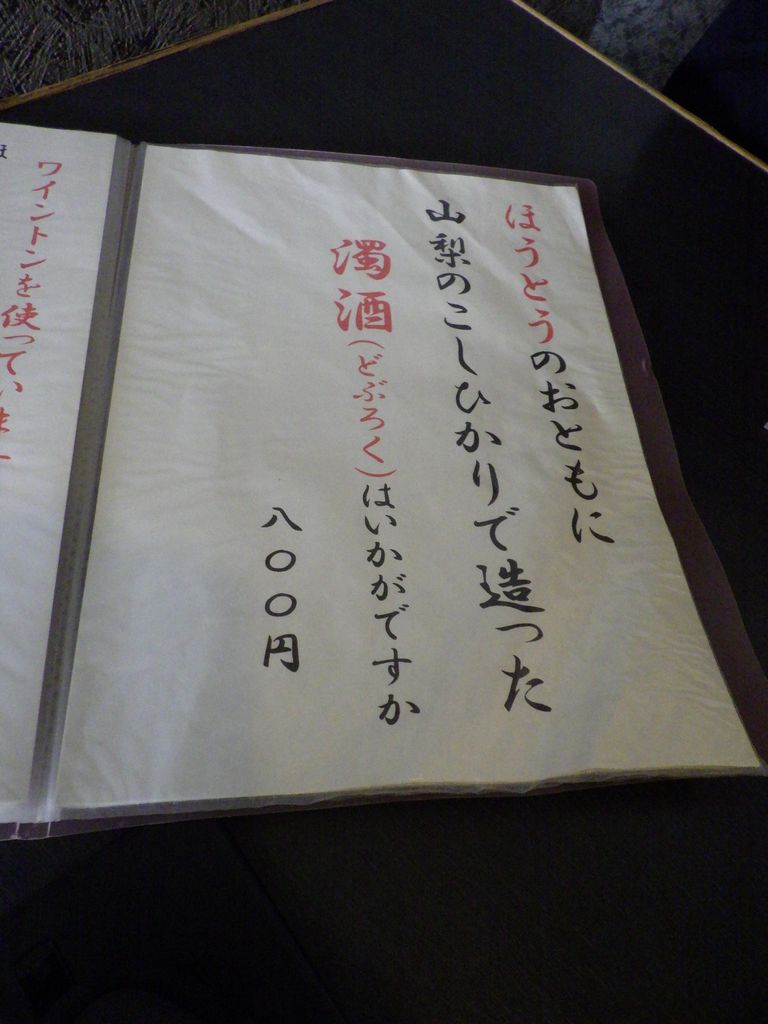 ほうとうのおともに
山梨のこしひかりで造った
濁酒(どぶろく)はいかがですか
八〇〇円
ワイントンを使ってい